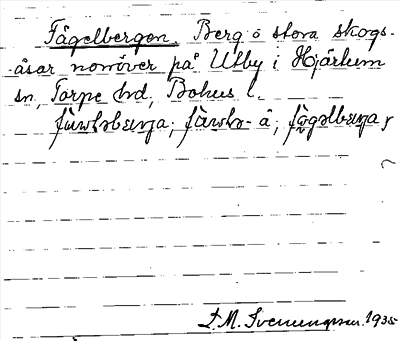 Fågelbergen. Berg o stora skogs-
åsar norröver på Utby i Hjärtum
sn, Torpe hd, Bohus l.
fågəlbærja,
L. M. Svenungsson. 1935